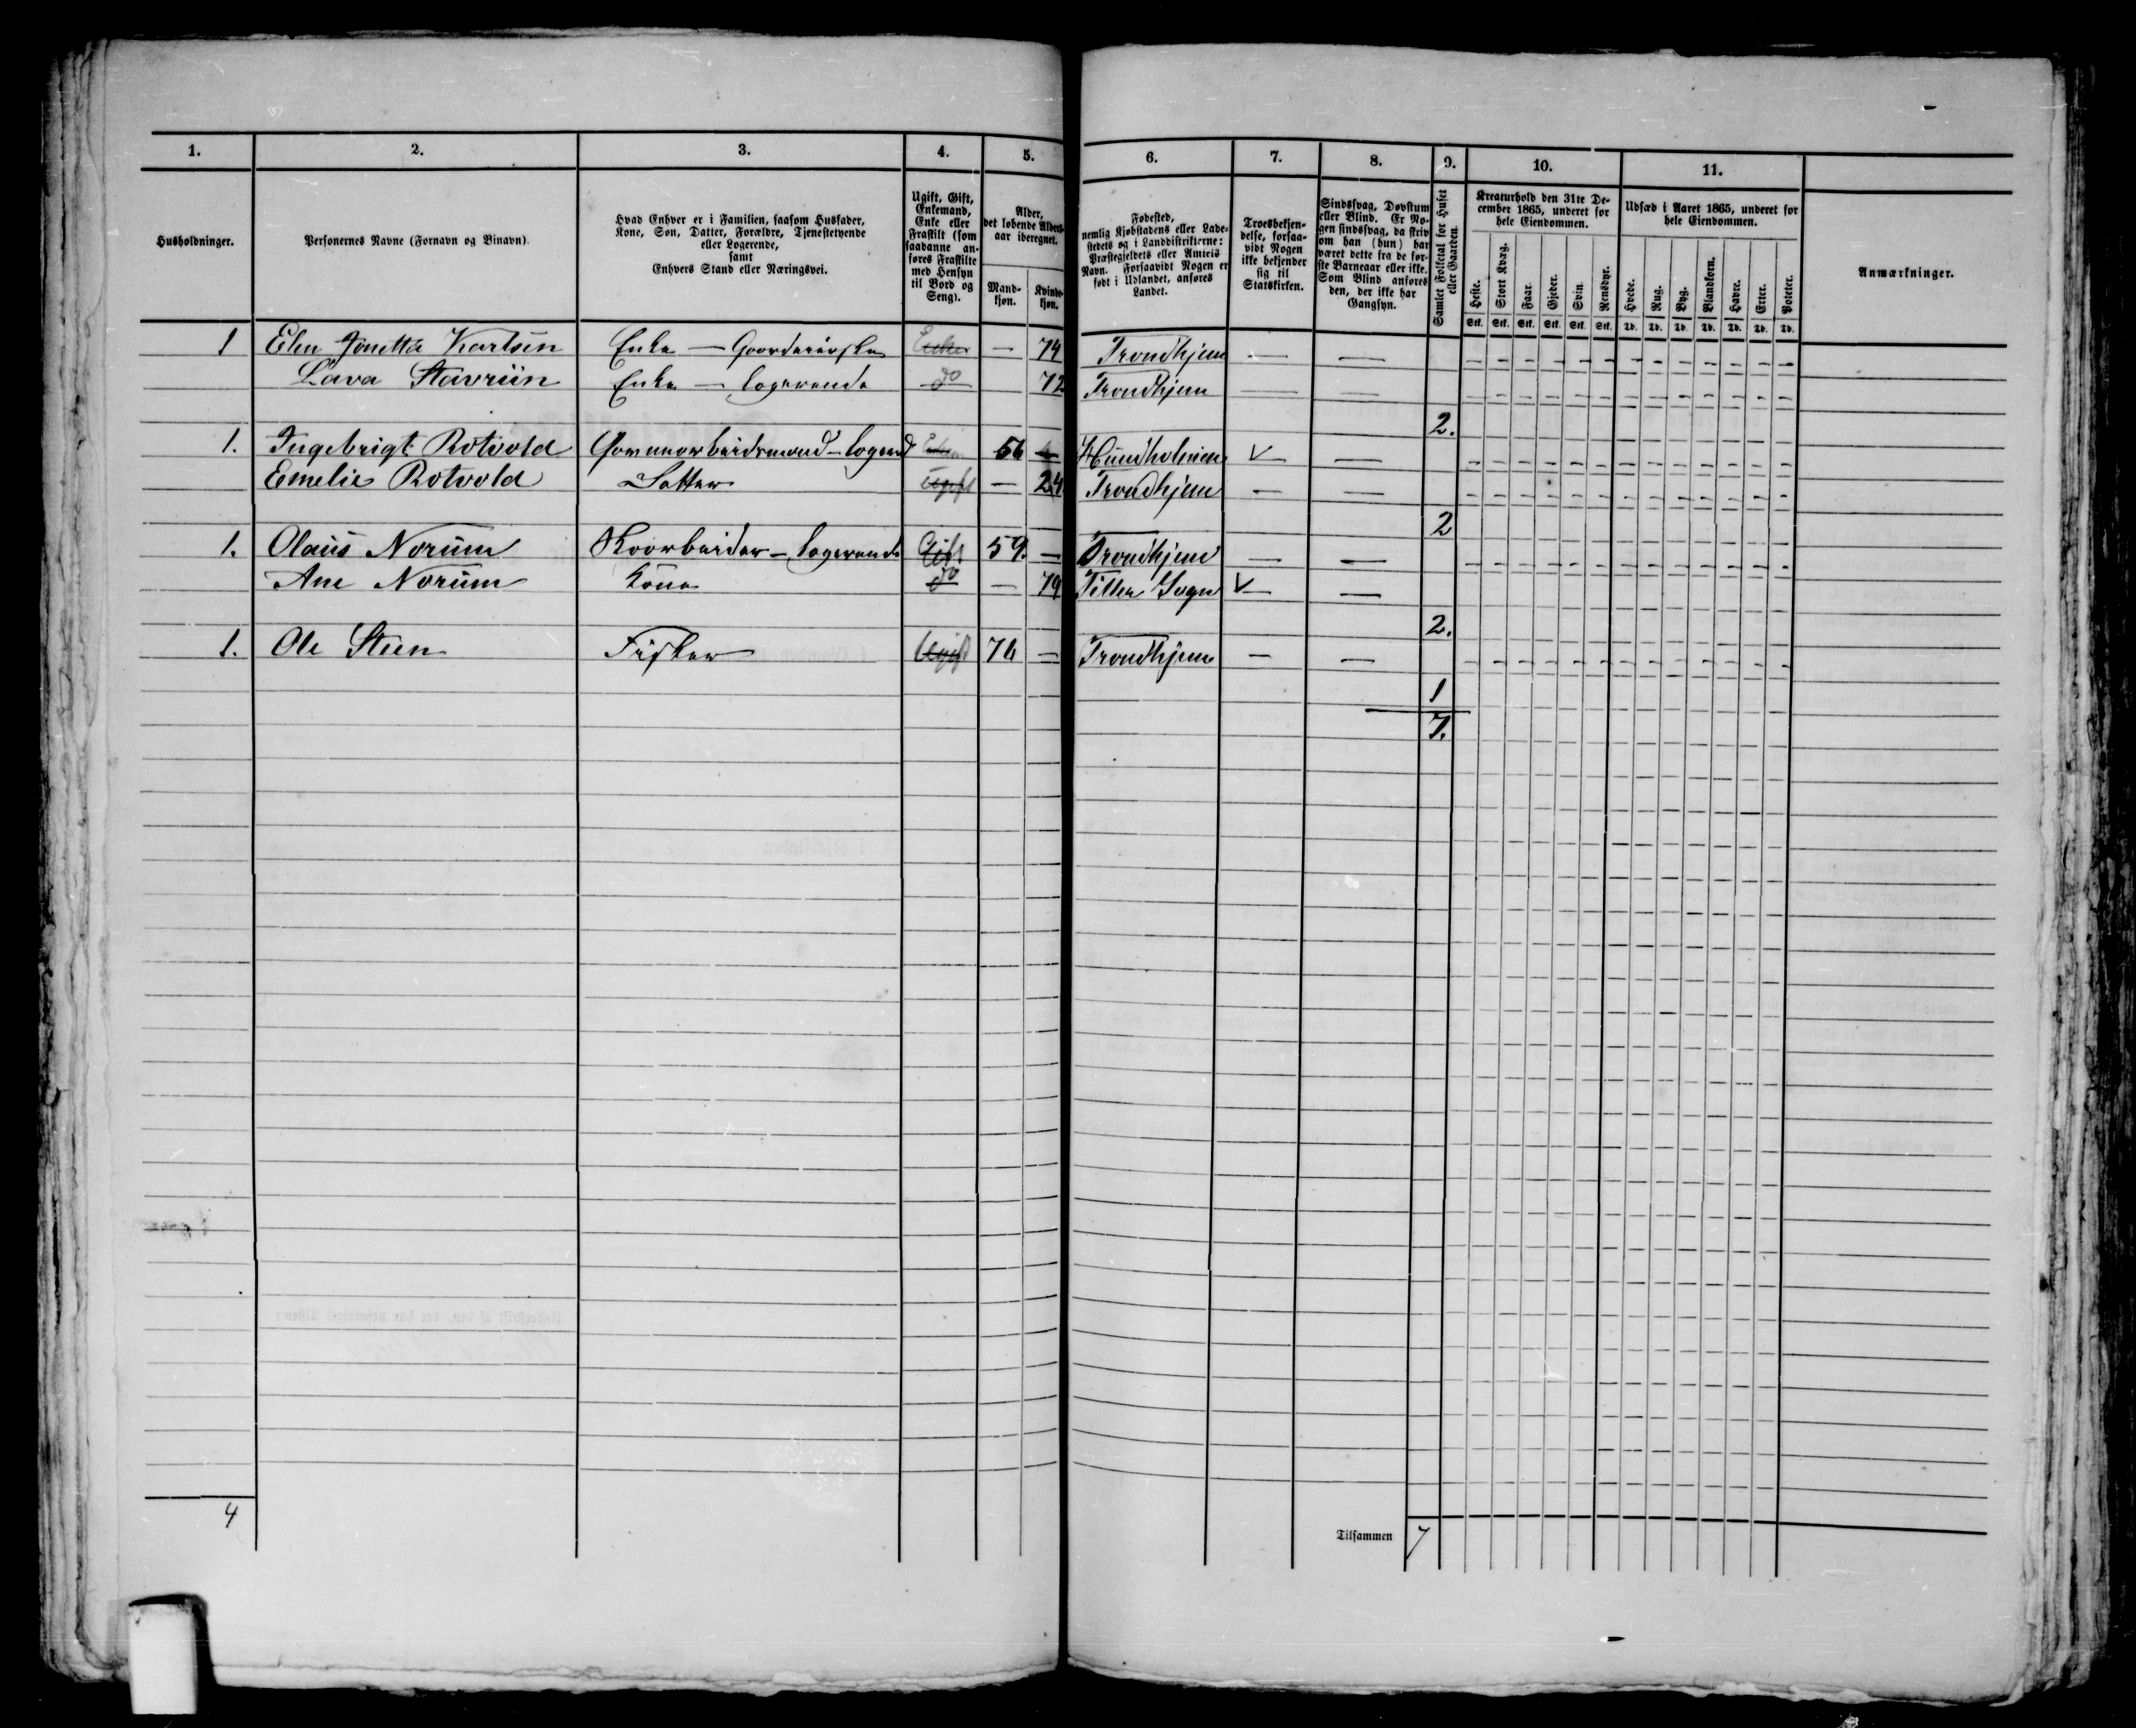 1. 2. 3. 4. 5. 6. 7. 8. 9. 10. 11.
Husholdninger.
Personernes Navne (Fornavn og Binavn).
Hvad Enhver er i Familien, saasom Husfader,
Kone, Søn, Datter, Forældre, Tjenestetyende
eller Logerende,
samt
Enhvers Stand eller Næringsvei.
Ugift, Gift,
Enkemand,
Enke eller
Fraskilt (som
saadanne an-
føres Fraskilte
med Hensyn
til Bord og
Seng).
Alder,
det løbende Alders-
aar iberegnet.
Mand-
kjøn.
Kvinde-
kjøn.
Fødested,
nemlig Kjøbstadens eller Lade-
stedets og i Landdistrikterne:
Præstegjeldets eller Amtets
Navn. Forsaavidt Nogen er
født i Udlandet, anføres
Landet.
Troesbekjen-
delse, forsaa-
vidt Nogen
ikke bekjender
sig til
Statskirken.
Sindssvag, Døvstum
eller Blind. Er No-
gen sindssvag, da skriv
om han (hun) har
været dette fra de før-
ste Barneaar eller ikke.
Som Blind anføres
den, der ikke har
Gangsyn.
Samlet Folketal for Huset
eller Gaarden.
Kreaturhold den 31te De-
cember 1865, underet for
hele Eiendommen.
Heste. Stort Kvæg. Faar. Gjeder. Svin. Rensdyr.
Stk. Stk. Stk. Stk. Stk. Stk.
Udsæd i Aaret 1865, underet for
hele Eiendommen.
Hvede. Rug. Byg. Blandkorn. Havre. Erter. Poteter.
Td. Td. Td. Td. Td. Td. Td.
Anmærkninger.
1 Elen Jonetta Karlsen Enke — Gaardeierske Enke — 74 Trondhjem — —
Lava Stavriin Enke — logerende do 72 Trondhjem — —
2.
1. Ingebrigt Rotvold 56 — V —
Emelie Rotvold Datter Ugift — 24 Trondhjem — —
2
1. Olaus Norum Skoarbeider — logerende Gift 59. — Trondhjem — —
Ane Norum Kone do — 79 Tiller Sogn V — —
2.
1. Ole Steen Fisker Ugift 76 — Trondhjem — —
1
7.
4
Tilsammen 7